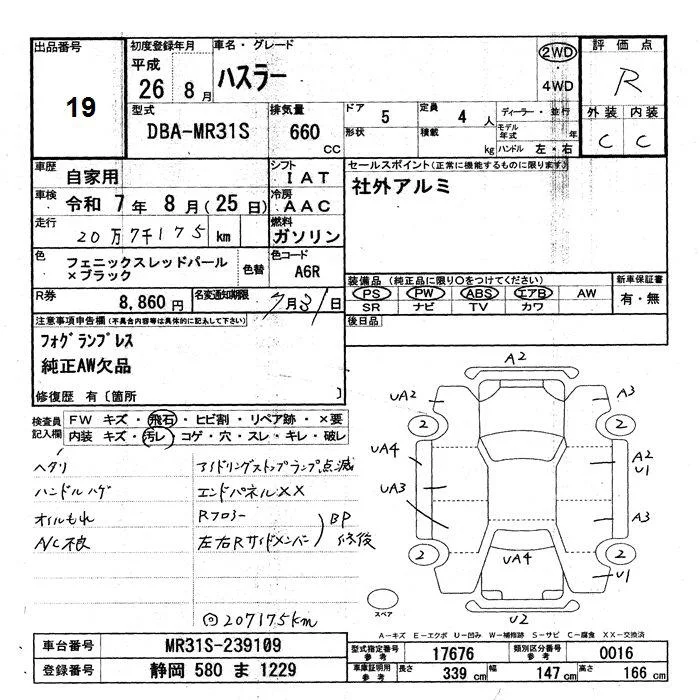 出品番号
19
初度登録年月
平成
26 8月
車名・グレード
ハスラー
2WD
4WD
評価点
R
外装 内装
C C
型式
DBA-MR31S
排気量
660
CC
ドア 5
形状
定員 4 人
積載 kg
ディーラー・並行
モデル年式 年
ハンドル 左・右
車歴
自家用
シフト
IAT
セールスポイント(正常に機能するものに限ります)
社外アルミ
車検
令和 7年 8月(25日)
冷房
AAC
走行
20万7千175 km
燃料
ガソリン
色
フェニックスレッドパール
×ブラック
色替
色コード
A6R
装備品(純正品に限り○をつけてください)
PS PW ABS エアB AW
SR ナビ TV カワ
新車保証書
有・無
R券
8,860円
名変通知期限
7月31日
後日品
注意事項申告欄(不具合内容等は具体的に記入して下さい)
フォグランプレス
純正AW欠品
修復歴 有〔箇所 〕
検査員
記入欄
FW キズ・飛石・ヒビ割・リペア跡・×要
内装 キズ・汚レ・コゲ・穴・スレ・キレ・破レ
ヘタリ
ハンドルハゲ
オイルもれ
A/C不良
アイドリングストップランプ点滅
エンドパネルXX
Rフロアー
左右Rサイドメンバー
BP
修復
◎207175km
A2
UA2
A3
2
2
UA4
A2
U1
UA3
A3
2
2
UA4
U1
U2
スペア
A-キズ E-エクボ U-凹み W-補修跡 S-サビ C-腐食 XX-交換済
車台番号
MR31S-239109
型式指定番号
参考
17676
類別区分番号
参考
0016
登録番号
静岡 580 ま 1229
車庫証明用
参考
長さ 339 cm
幅 147 cm
高さ 166 cm